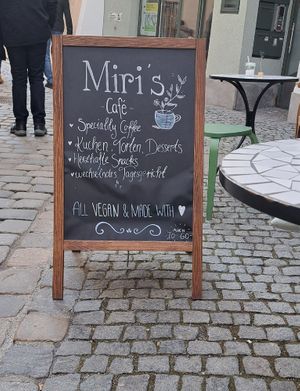 Miri's
Café
Speciality Coffee
Kuchen, Torten, Desserts
Herzhafte Snacks
wechselndes Tagesgericht
ALL VEGAN & MADE WITH ♥
AUCH
TO GO